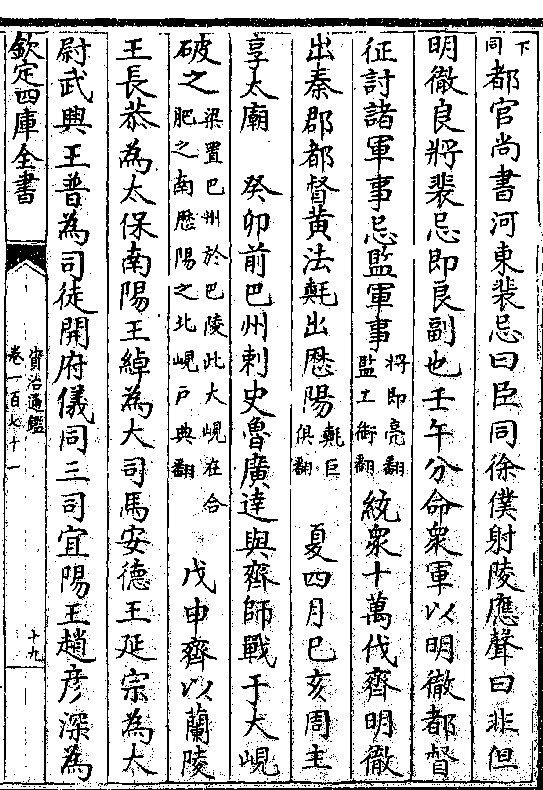 下同都官尚書河東裴忌曰臣同徐僕射陵應聲曰非但
明徹良將裴忌即良副也壬午分命衆軍以明徹都督
征討諸軍事忌監軍事將即亮翻監工銜翻統衆十萬伐齊明徹
出秦郡都督黄法𣰰出歴陽𣰰巨俱翻夏四月己亥周主
享太廟　癸卯前巴州刺史魯廣達與齊師戰于大峴
破之梁置巴州於巴陵此大峴在合肥之南歴陽之北峴戸典翻戊申齊以蘭陵
王長恭為太保南陽王綽為大司馬安德王延宗為大
尉武興王普為司徒開府儀同三司宜陽王趙彦深為
欽定四庫全書
資治通鑑
卷一百七十一
十九